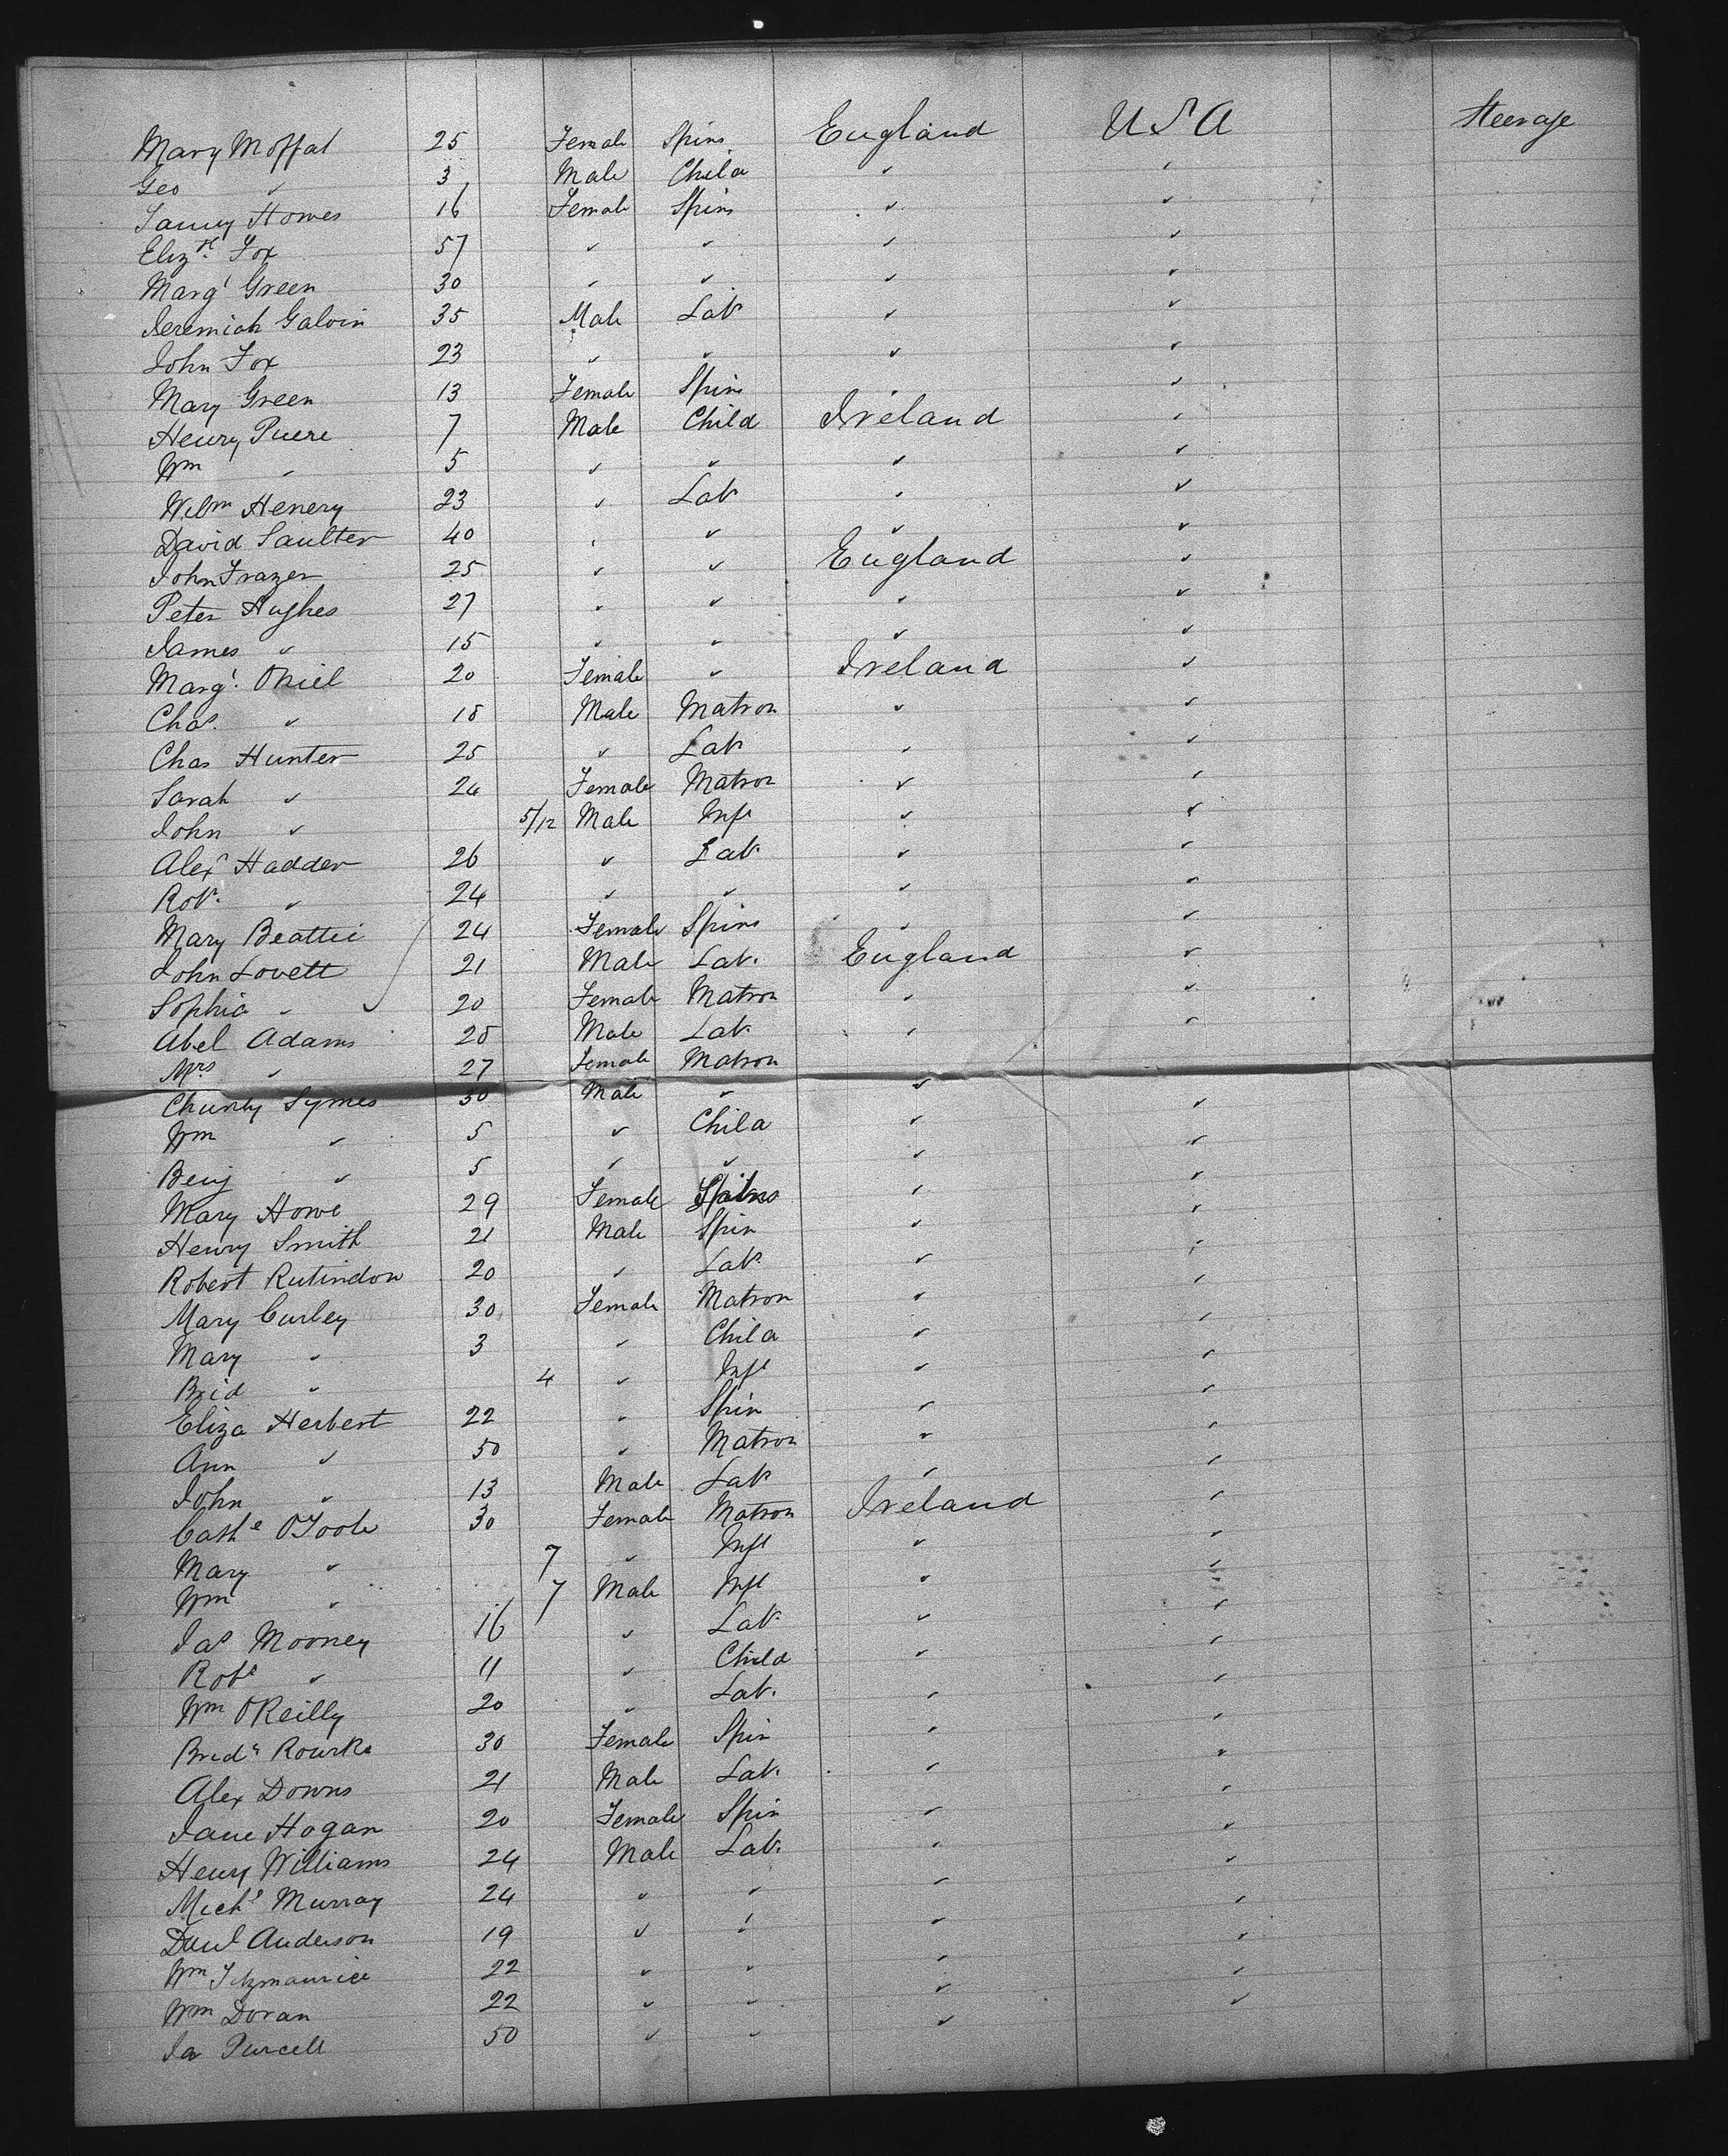 Mary Moffat 25 Female Spins England USA Steerage
Geo " 3 Male Child " "
Fanny Howes 16 Female Spins " "
Elizth Fox 57 " " " "
Margt Green 30 " " " "
Jeremiah Galvin 35 Male Lab " "
John Fox 23 " " " "
Mary Green 13 Female Spins " "
Henry 7 Male Child Ireland "
Wm " 5 " " " "
Wilm Henery 23 " Lab " "
David Saulter 40 " " " "
John Frazer 25 " " England "
Peter Hughes 27 " " " "
James " 15 " " " "
Margt Oniel 20 Female " Ireland "
Chas " 18 Male Matron " "
Chas Hunter 25 " Lab " "
Sarah " 24 Female Matron " "
John " 5/12 Male Inft " "
Alexr Hadder 26 " Lab " "
Robt " 24 " " " "
Mary Beattie 24 Female Spins " "
John Lovett 21 Male Lab England "
Sophia " 20 Female Matron " "
Abel Adams 28 Male Lab " "
Mrs " 27 Female Matron
Symes 30 Male " "
Wm " 5 " Child " "
Benj " 5 " " " "
Mary Howe 29 Female Spins " "
Henry Smith 21 Male Spin " "
Robert Rutindow 20 " Lab " "
Mary Curley 30 Female Matron " "
Mary " 3 " Child " "
Brid " 4 " Inft " "
Eliza Herbert 22 " Spin " "
Ann " 50 " Matron " "
John " 13 Male Lab " "
Cathe OToole 30 Female Matron Ireland "
Mary " 7 " Inft " "
Wm " 7 Male Inft " "
Jas Mooney 16 " Lab " "
Robt " 11 " Child " "
Wm OReilly 20 " Lab " "
Bridt Rourke 30 Female Spin " "
Alex Downs 21 Male Lab " "
Jane Hogan 20 Female Spin " "
Henry Williams 24 Male Lab " "
Michl Murray 24 " " " "
Danl Anderson 19 " " " "
Wm Fitzmaurice 22 " " " "
Wm Doran 22 " " " "
Ja Purcell 50 " " "